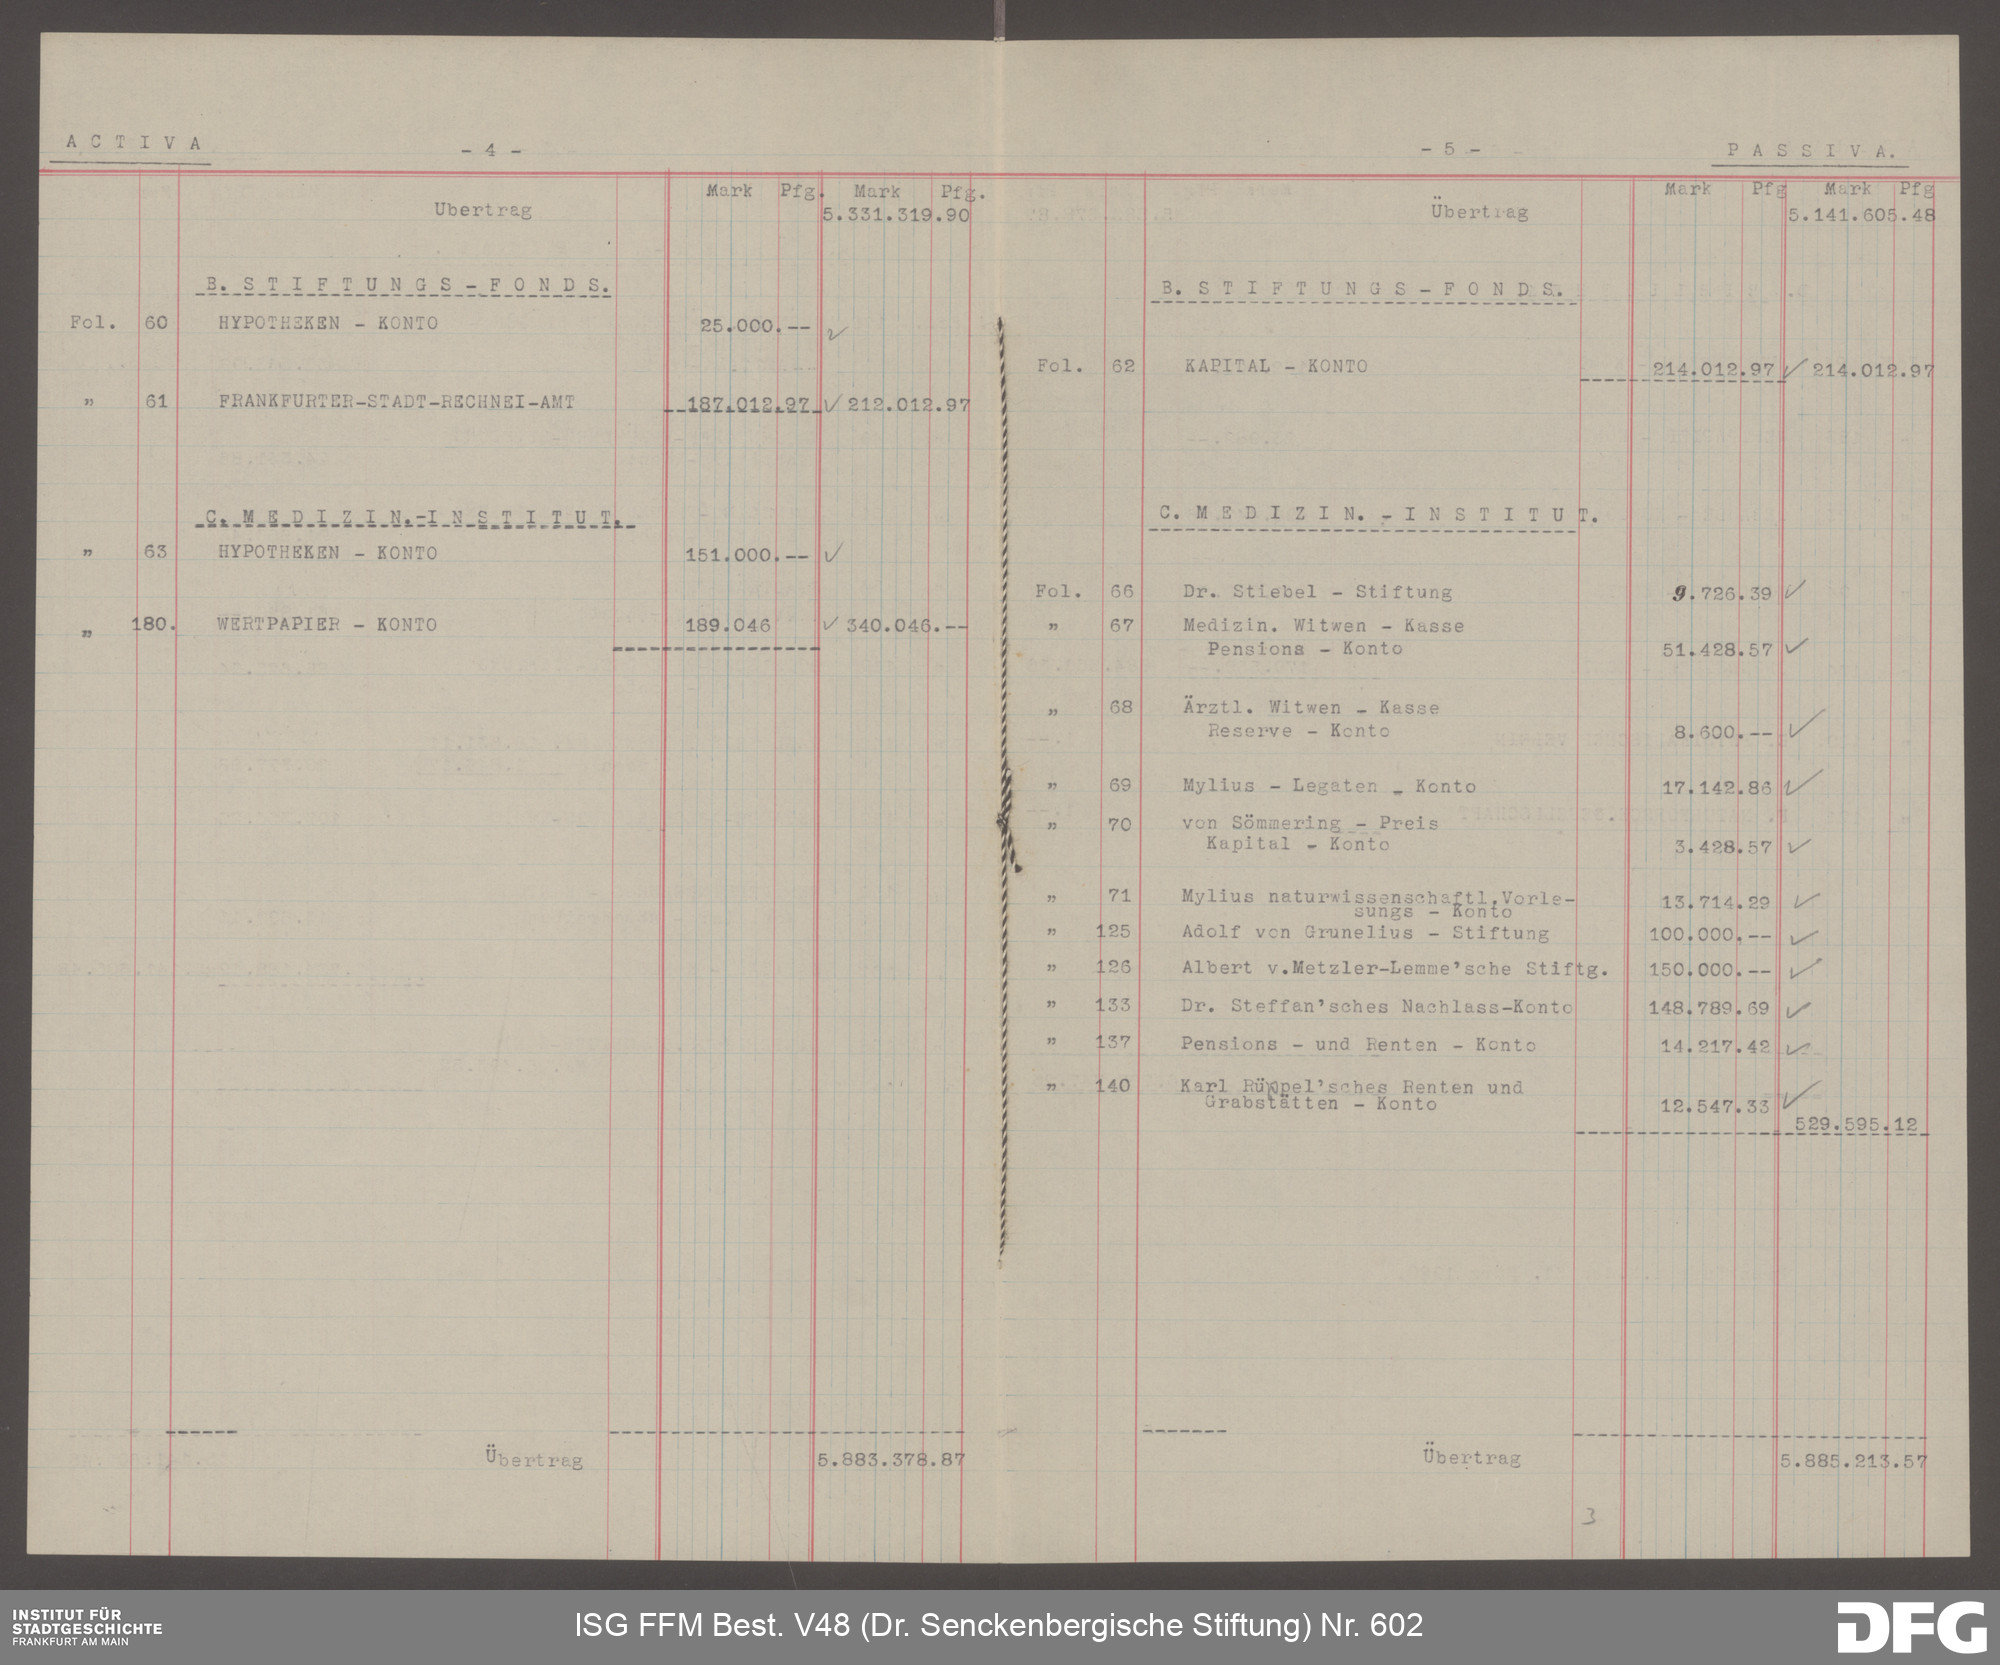 A C T I V A
- 4 -
Mark Pfg. Mark Pfg.
Ubertrag 5.331.319.90
B. S T I F T U N G S - F O N D S.
Fol. 60 HYPOTHEKEN - KONTO 25.000.--
" 61 FRANKFURTER-STADT-RECHNEI-AMT 187.012.97 212.012.97
C. M E D I Z I N.-I N S T I T U T.
" 63 HYPOTHEKEN - KONTO 151.000.--
" 180. WERTPAPIER - KONTO 189.046 340.046.--
Übertrag 5.883.378.87
- 5 -
P A S S I V A.
Mark Pfg Mark Pfg
Übertrag 5.141.605.48
B. S T I F T U N G S - F O N D S.
Fol. 62 KAPITAL - KONTO 214.012.97 214.012.97
C. M E D I Z I N. - I N S T I T U T.
Fol. 66 Dr. Stiebel - Stiftung 9.726.39
" 67 Medizin. Witwen - Kasse
Pensions - Konto 51.428.57
" 68 Ärztl. Witwen - Kasse
Reserve - Konto 8.600.--
" 69 Mylius - Legaten - Konto 17.142.86
" 70 von Sömmering - Preis
Kapital - Konto 3.428.57
" 71 Mylius naturwissenschaftl.Vorle-
sungs - Konto 13.714.29
" 125 Adolf von Grunelius - Stiftung 100.000.--
" 126 Albert v.Metzler-Lemme'sche Stiftg. 150.000.--
" 133 Dr. Steffan'sches Nachlass-Konto 148.789.69
" 137 Pensions - und Renten - Konto 14.217.42
" 140 Karl Rüppel'sches Renten und
Grabstätten - Konto 12.547.33
529.595.12
Übertrag 5.885.213.57
3
INSTITUT FÜR
STADTGESCHICHTE
FRANKFURT AM MAIN
ISG FFM Best. V48 (Dr. Senckenbergische Stiftung) Nr. 602
DFG